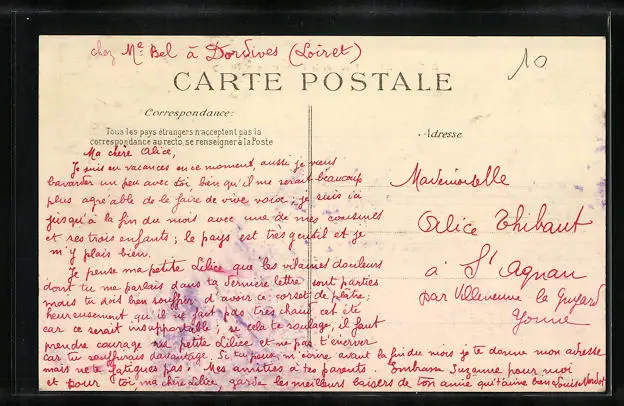 chez Me Bel à Dordives (Loiret)
10
CARTE POSTALE
Correspondance:
Tous les pays étrangers n'acceptent pas la
correspondance au recto, se renseigner à la Poste
Adresse
Ma chère Alice,
Je suis en vacances en ce moment, aussi je veux
bavarder un peu avec toi, bien qu'il me serait beaucoup
plus agréable de le faire de vive voix; je suis ici
jusqu'à la fin du mois avec une de mes cousines
et ses trois enfants; le pays est très gentil et je
m'y plais bien.
Je pense ma petite Lilice que les vilaines douleurs
dont tu me parlais dans ta dernière lettre sont parties
mais tu dois bien souffrir d'avoir ce corset de plâtre;
heureusement qu'il ne fait pas très chaud cet été
car ce serait insupportable; si cela te soulage, il faut
prendre courage ma petite Lilice et ne pas t'énerver
car tu souffrirais davantage. Si tu peux m'écrire avant la fin du mois je te donne mon adresse
mais ne te fatigues pas. Mes amitiés à tes parents. Embrasse Suzanne pour moi
et pour toi, ma chère Lilice, garde les meilleurs baisers de ton amie qui t'aime bien Louise
Mademoiselle
Alice Thibaut
à St Agnan
par Villeneuve la Guyard
Yonne